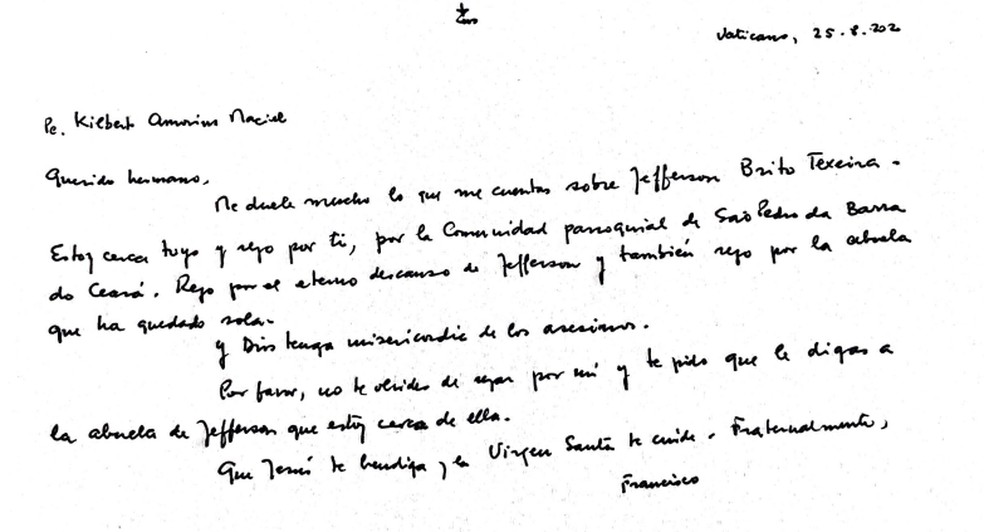 Vaticano, 25.8.202
Pe. Kilbert Amorim Maciel
Querido hermano,
Me duele mucho lo que me cuentas sobre Jefferson Brito Texeira.
Estoy cerca tuyo y rezo por ti, por la Comunidad parroquial de São Pedro da Barra
do Ceará. Rezo por el eterno descanso de Jefferson y también rezo por la abuela
que ha quedado sola.
y Dios tenga misericordia de los asesinos.
Por favor, no te olvides de rezar por mí y te pido que le digas a
la abuela de Jefferson que estoy cerca de ella.
Que Jesús te bendiga y la Virgen Santa te cuide. Fraternalmente,
Francisco